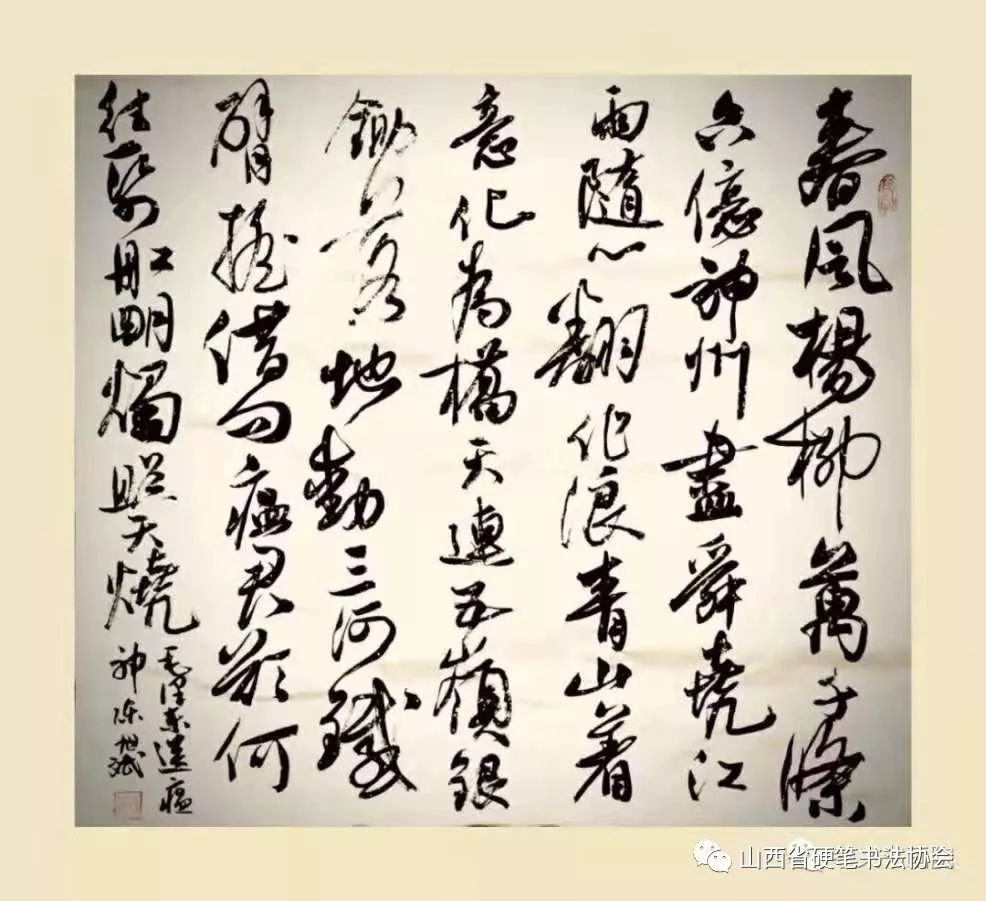 春風楊柳萬千條
六億神州盡舜堯江
雨隨心翻作浪青山着
意化為橋天連五嶺銀
鋤落地動三河鐵
臂搖借問瘟君欲何
往紙船明燭照天燒
毛澤東送瘟
神陳旭斌
山西省硬笔书法协会